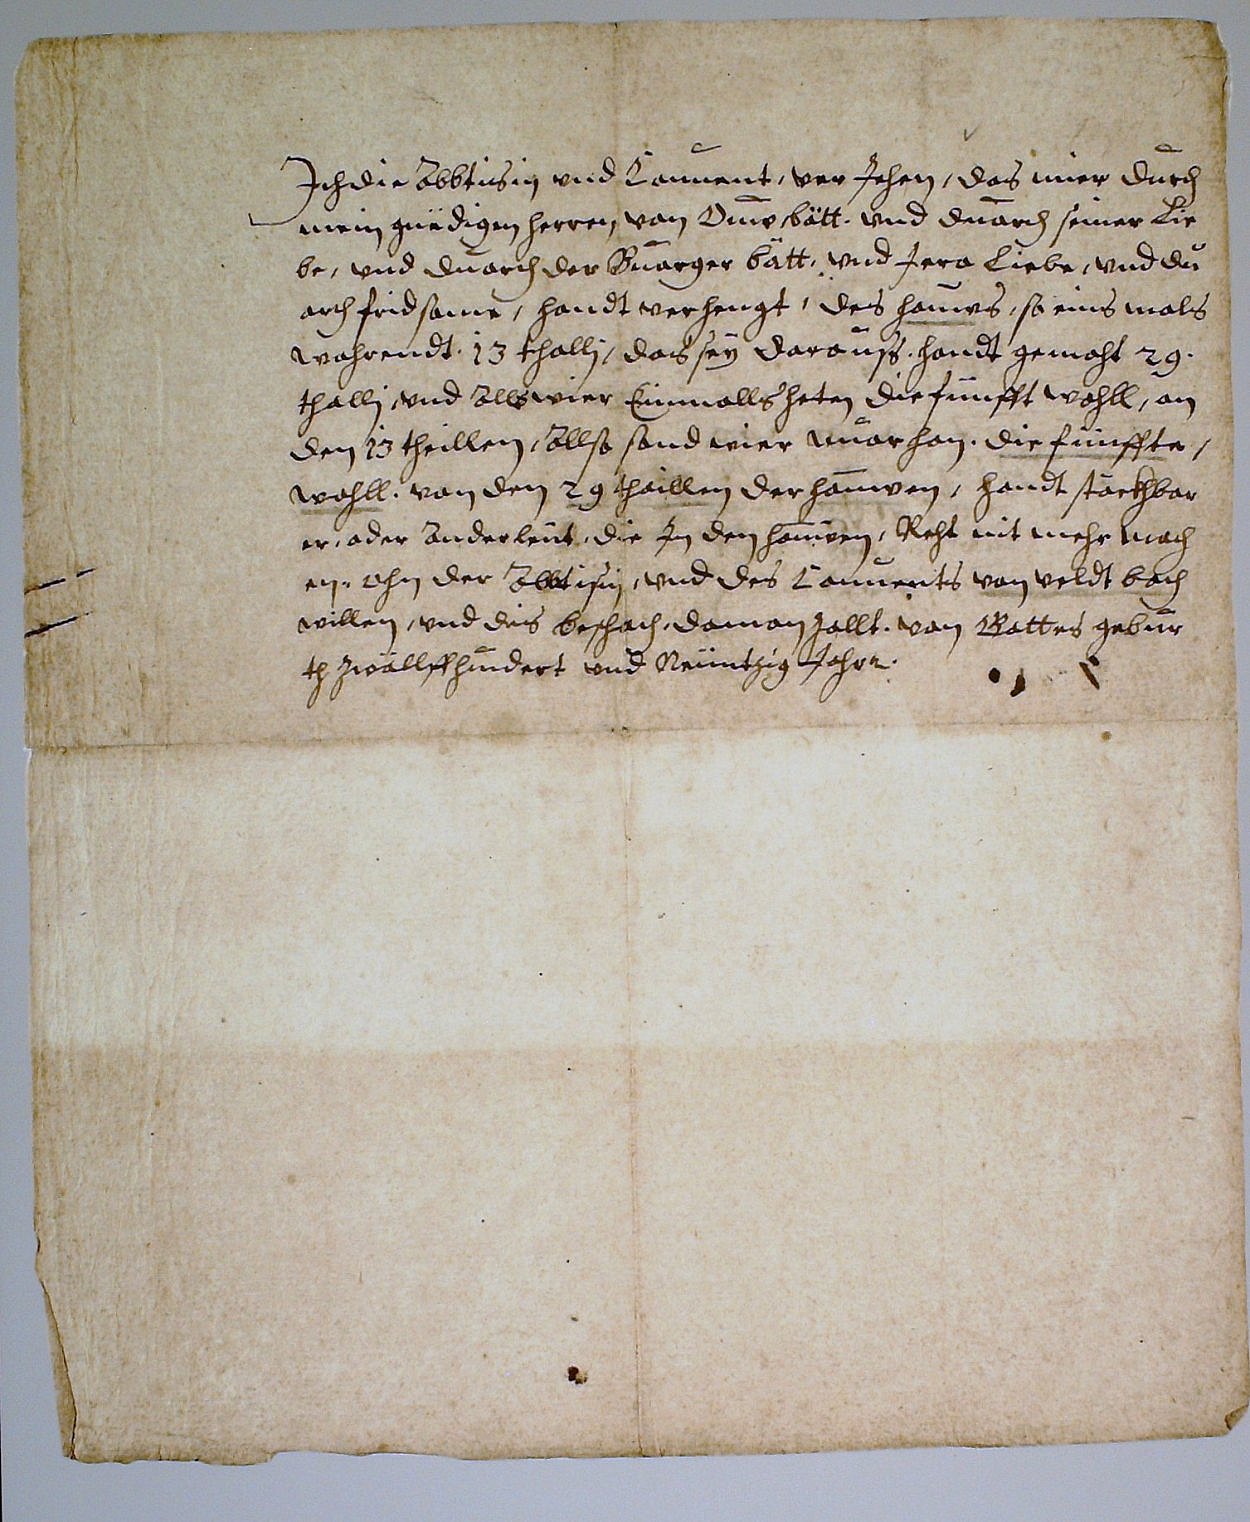 Ich die Äbbtisin vnd Conuent, ver Jehen, das mier durch
mein gnedigen herren, von bätt. vnd duorch seiner Lie
be, vnd duorch der Buorger bätt, vnd Jera Liebe, vnd du
orch fridsame, handt verhengt, des houws, so eins mals
wahrendt. 13 thallj, das sey darauss. handt gemaht 29.
thallj, vnd Alls wier Einmalls heten die fünfft wahll, an
den 13 theillen, Allso sond wier nuor han. die fünffte,
wahll. von den 29 thaillen der houwen, handt
er, oder Ander leüt, die In den houwen, Reht nit mehr mach
en. ohn der Äbbtisin, vnd des Conuents von veldt bach
willen, vnd dis beschach, da man Zallt. von Gottes gebur
th Zwöllffhundert vnd Neüntzig Jahre.